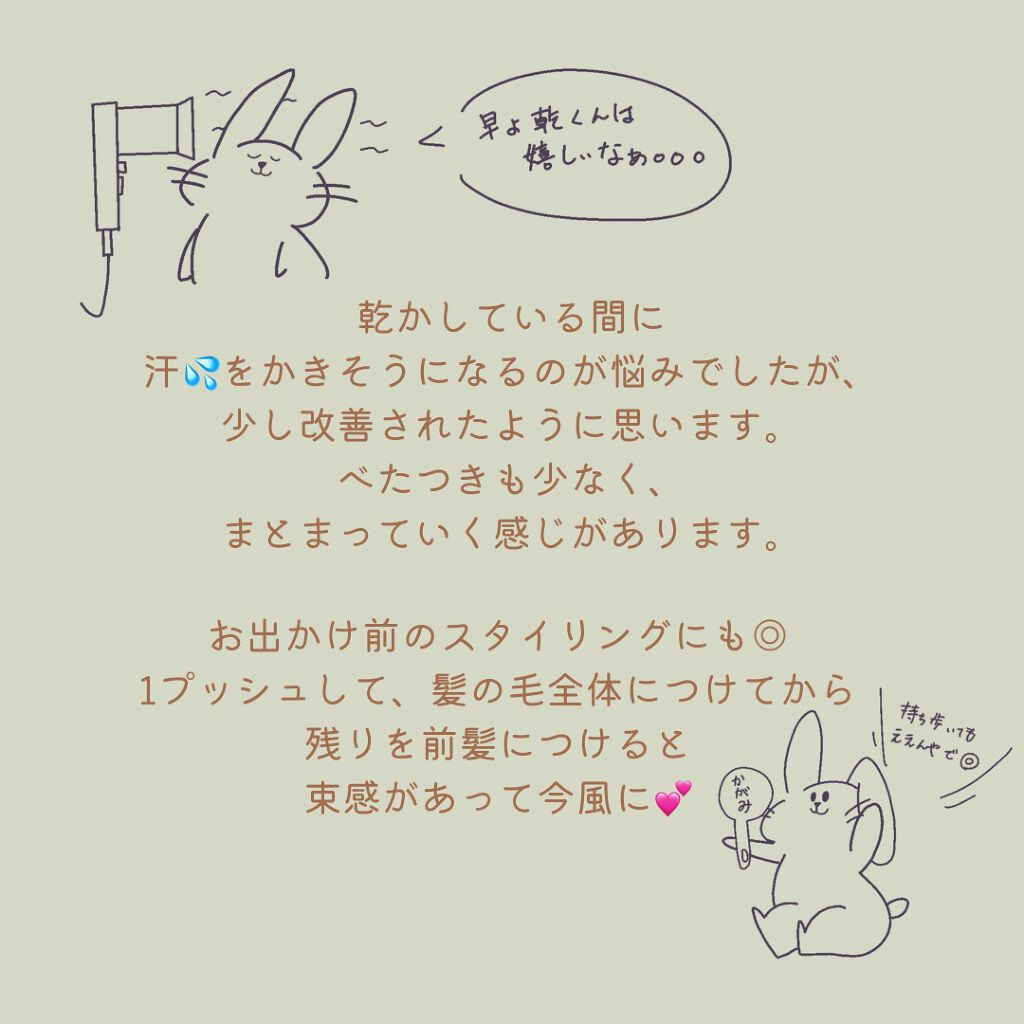 早よ乾くんは
嬉しいなぁ。。。
乾かしている間に
汗💦をかきそうになるのが悩みでしたが、
少し改善されたように思います。
べたつきも少なく、
まとまっていく感じがあります。
お出かけ前のスタイリングにも◎
1プッシュして、髪の毛全体につけてから
残りを前髪につけると
束感があって今風に💕
持ち歩いても
ええんやで◎
かがみ